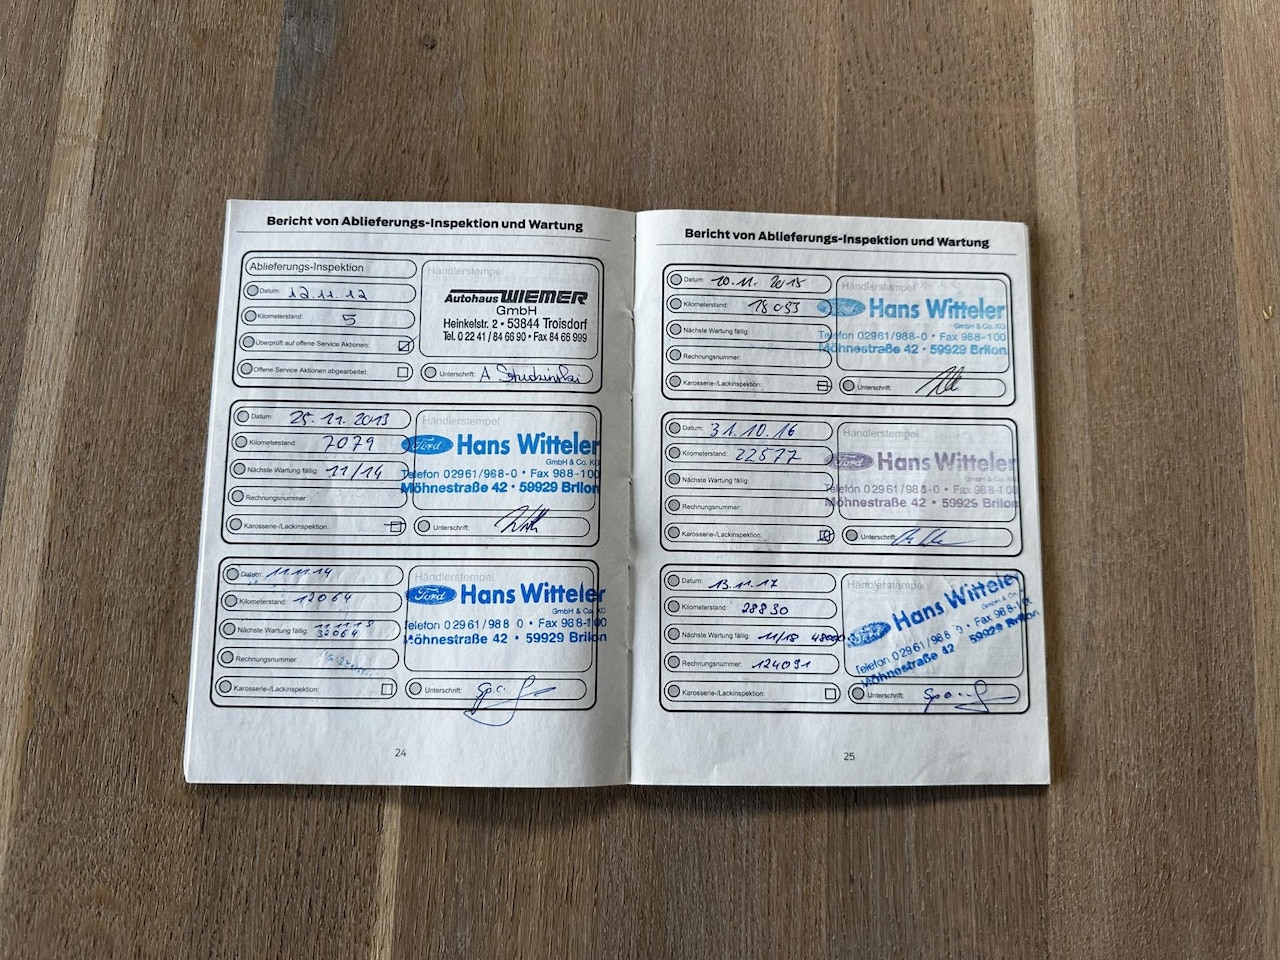 Bericht von Ablieferungs-Inspektion und Wartung
Ablieferungs-Inspektion
Datum: 12.11.12
Kilometerstand: 5
Überprüft auf offene Service Aktionen:
Offene Service Aktionen abgearbeitet:
Händlerstempel
Autohaus WIEMER
GmbH
Heinkelstr. 2 • 53844 Troisdorf
Tel. 0 22 41 / 84 66 90 • Fax 84 66 999
Unterschrift:
Datum: 25.11.2013
Kilometerstand: 7079
Nächste Wartung fällig: 11/14
Rechnungsnummer:
Karosserie-/Lackinspektion:
Händlerstempel
Ford Hans Witteler
GmbH & Co. KG
Telefon 02961/988-0 • Fax 988-100
Möhnestraße 42 • 59929 Brilon
Unterschrift:
Datum: 11.11.14
Kilometerstand: 12064
Nächste Wartung fällig:
32064
Rechnungsnummer:
Karosserie-/Lackinspektion:
Händlerstempel
Ford Hans Witteler
GmbH & Co. KG
Telefon 02961/988-0 • Fax 988-100
Möhnestraße 42 • 59929 Brilon
Unterschrift:
24
Bericht von Ablieferungs-Inspektion und Wartung
Datum: 10.11.2015
Kilometerstand:
Nächste Wartung fällig:
Rechnungsnummer:
Karosserie-/Lackinspektion:
Händlerstempel
Ford Hans Witteler
GmbH & Co. KG
Telefon 02961/988-0 • Fax 988-100
Möhnestraße 42 • 59929 Brilon
Unterschrift:
Datum: 31.10.16
Kilometerstand: 22577
Nächste Wartung fällig:
Rechnungsnummer:
Karosserie-/Lackinspektion:
Händlerstempel
Ford Hans Witteler
GmbH & Co. KG
Telefon 02961/988-0 • Fax 988-100
Möhnestraße 42 • 59929 Brilon
Unterschrift:
Datum: 13.11.17
Kilometerstand: 28830
Nächste Wartung fällig: 11/18 48000
Rechnungsnummer: 124091
Karosserie-/Lackinspektion:
Händlerstempel
Ford Hans Witteler
GmbH & Co.
Telefon 02961/988-0 • Fax 988-100
Möhnestraße 42 59929 Brilon
Unterschrift:
25